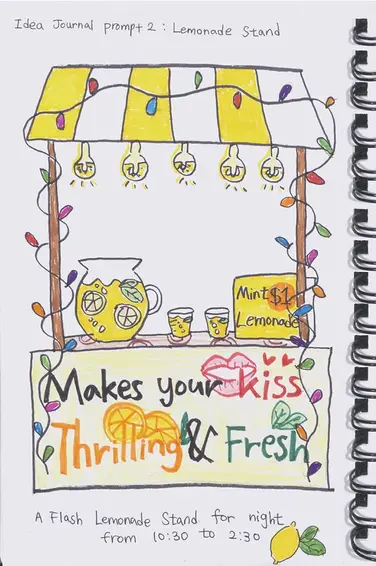 Idea Journal prompt 2 : Lemonade Stand
Mint $1
Lemonade
Makes your kiss
Thrilling & Fresh
A Flash Lemonade Stand for night
from 10:30 to 2:30